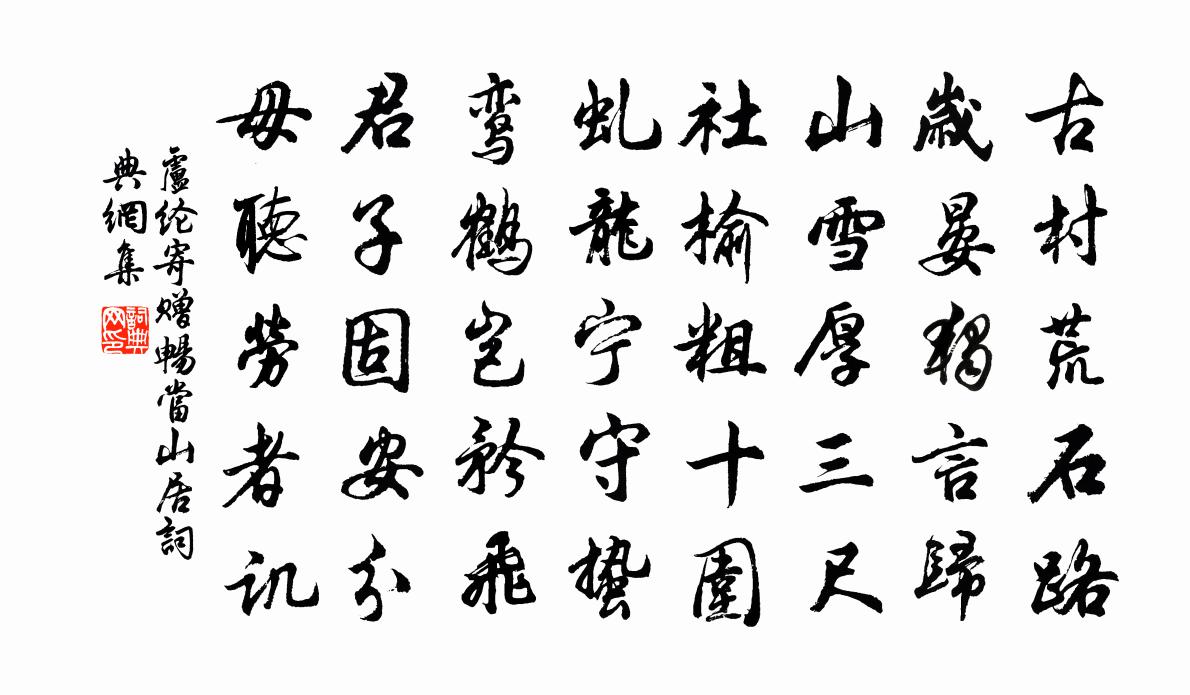 古村荒石路
歲晏獨言歸
山雪厚三尺
社榆粗十圍
虬龍宁守蛰
鸾鶴岂矜飛
君子固安分
毋聽勞者讥
盧纶寄赠暢當山居詞
典網集
詞典网印